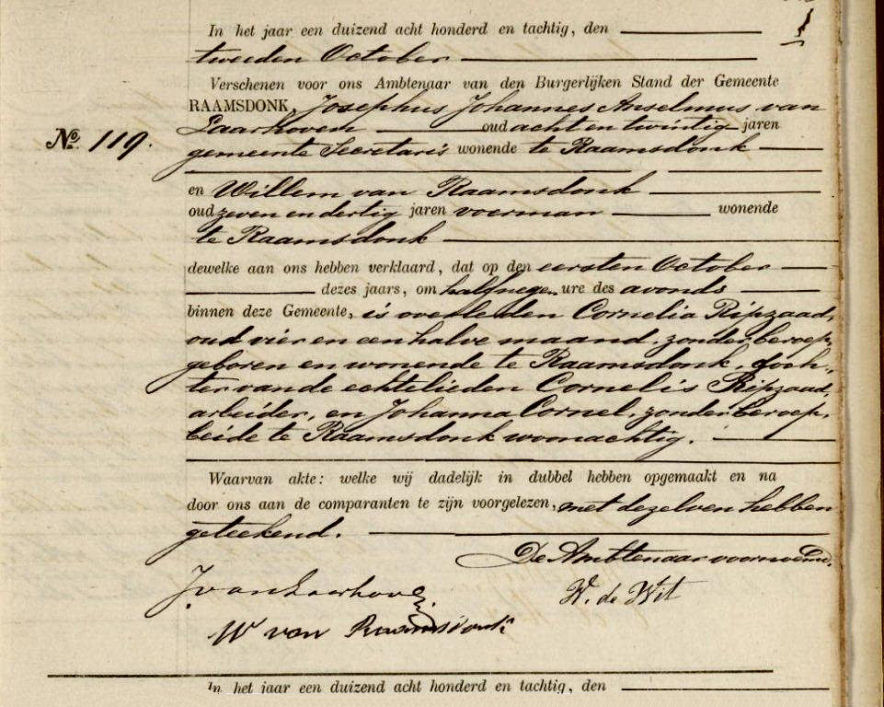 In het jaar een duizend acht honderd en tachtig, den
tweeden October
Verschenen voor ons Ambtenaar van den Burgerlijken Stand der Gemeente
RAAMSDONK, Josephus Johannes Anselmus van
Laarhoven oud acht en twintig jaren
No. 119. gemeente Secretaris wonende te Raamsdonk
en Willem van Raamsdonk
oud zeven en dertig jaren voerman wonende
te Raamsdonk
dewelke aan ons hebben verklaard, dat op den eersten October
dezes jaars, om half negen ure des avonds
binnen deze Gemeente, is overleden Cornelia Ripzaad,
oud vier en een halve maand, zonder beroep,
geboren en wonende te Raamsdonk, doch-
ter van de echtelieden Cornelis Ripzaad,
arbeider, en Johanna Cornel, zonder beroep,
beide te Raamsdonk woonachtig.
Waarvan akte: welke wij dadelijk in dubbel hebben opgemaakt en na
door ons aan de comparanten te zijn voorgelezen, met dezelven hebben
geteekend.
De Ambtenaar voornoemd,
J van Laarhoven
W. de Wit
W van Raamsdonk
In het jaar een duizend acht honderd en tachtig, den